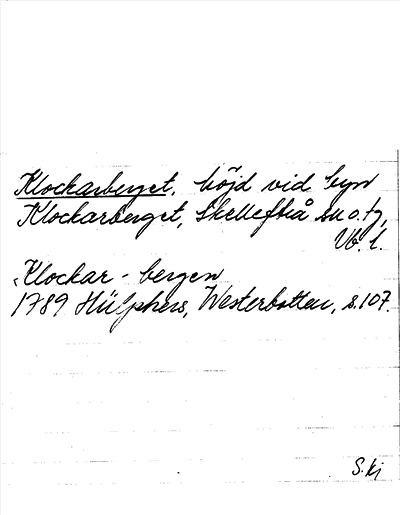 Klockarberget, höjd vid byn
Klockarberget, Skellefteå sn o. tg,
Vb. l.
Klockar - bergen
1789 Hülphers, Westerbotten, s. 107.
S. kj